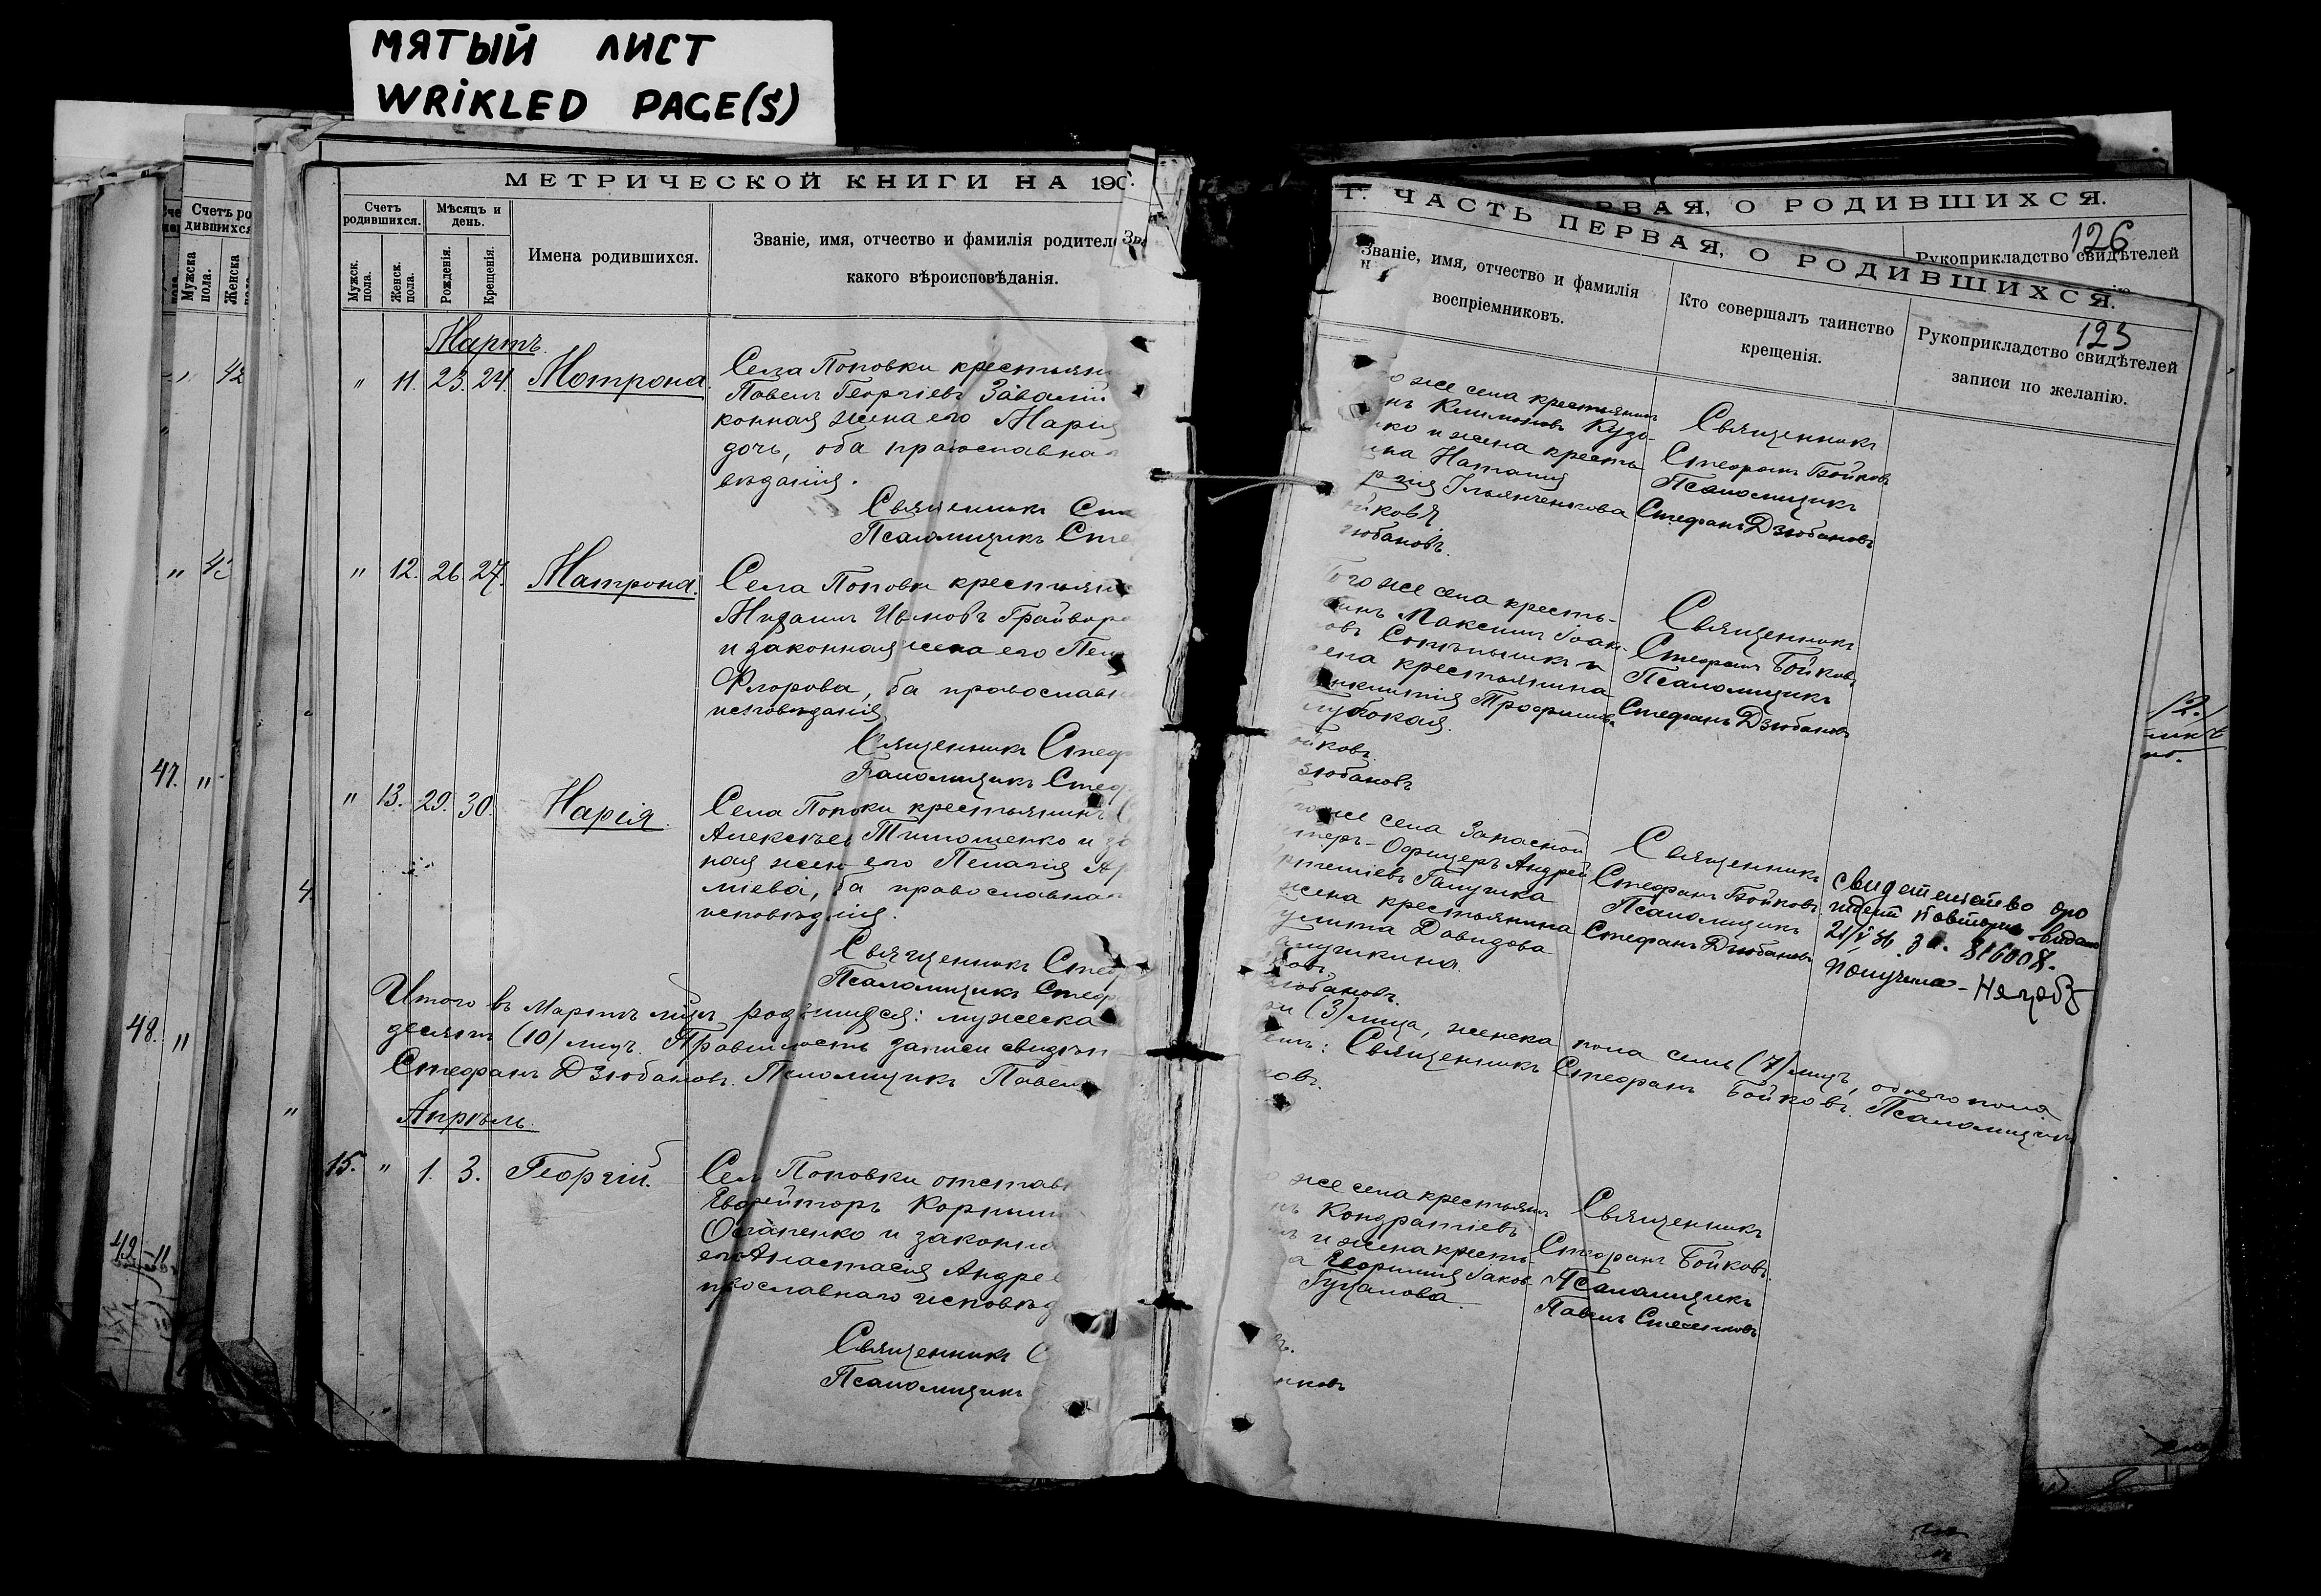 МЯТЫЙ ЛИСТ
WRiKLED PAGE(S)
МЕТРИЧЕСКОЙ КНИГИ НА 190
Счетъ родившихся.
Мѣсяцъ и день.
Мужск. пола.
Женск. пола.
Рожденія.
Крещенія.
Имена родившихся.
Званіе, имя, отчество и фамилія родител
какого вѣроисповѣданія.
Мартъ.
" 11. 23. 24. Мотрона.
Села Поповки крестьян
Павелъ Георгіевъ
конная жена его Марія
дочь, оба православна
вѣданія.
Священникъ Сте
Псаломщикъ Сте
" 12. 26. 27. Матрона.
Села Поповки крестьян
Ивановъ Грайворо
и законная жена его Пел
Флорова, ба православн
исповѣданія
Священникъ Стеф
Псаломщикъ Стеф
" 13. 29. 30. Марія.
Села Поповки крестьянинъ
Алексѣевъ Тимошенко и за
ная жена его Пелагія
міева, ба православна
исповѣданія.
Священникъ Стеф
Псаломщикъ Стеф
Итого въ Мартѣ мцѣ родившихся: мужеска
десять (10) лицъ. Правильность записи свидѣт
Стефанъ Дзюбановъ. Псаломщикъ Павелъ
Апрѣль.
15. " 1. 3. Георгій.
Села Поповки отстав
Ефрейторъ Корнил
Остапенко и законна
его Анастасія Андрее
православнаго исповѣд
Священникъ С
Псаломщикъ
РВАЯ, О РОДИВШИХСЯ.
126
Рукоприкладство свидѣтелей
Г. ЧАСТЬ ПЕРВАЯ, О РОДИВШИХСЯ.
123
Званіе, имя, отчество и фамилія
воспріемниковъ.
Кто совершалъ таинство
крещенія.
Рукоприкладство свидѣтелей
записи по желанію.
о же села крестьянинъ
нъ Климовъ Кузь-
ко и жена кресть
ина Наталія
Ильянченкова
йковъ.
зюбановъ.
Священникъ
Стефанъ Бойковъ
Псаломщикъ
Стефанъ Дзюбановъ
того же села кресть-
нинъ Максимъ Іоан-
овъ и
жена крестьянина
Трофимова
лубокая.
ойковъ.
зюбановъ
Священникъ
Стефанъ Бойковъ
Псаломщикъ
Стефанъ Дзюбановъ
го же села Запасной
нтеръ-Офицеръ Андрей
Галушка
жена крестьянина
улита Давидова
алушкина.
ковъ.
зюбановъ.
Священникъ
Стефанъ Бойковъ
Псаломщикъ
Стефанъ Дзюбановъ
свидетельство оро
ждении повторно выдано
21/V 36 за № 816008.
получила -
ри (3) лица, женска пола семь (7) лицъ, обоего пола
емъ: Священникъ Стефанъ Бойковъ. Псаломщикъ
ковъ.
о же села крестьянин
нъ Кондратіевъ
и жена кресть-
а Евфимія Іаков
Гуцалова.
нковъ
Священникъ
Стефанъ Бойковъ.
Псаломщикъ
Павелъ